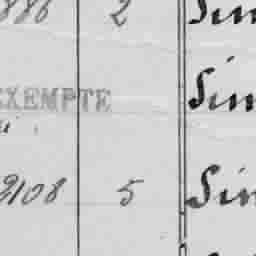 886 2 Sin
EXEMPTE Sin
2108 5 Sin